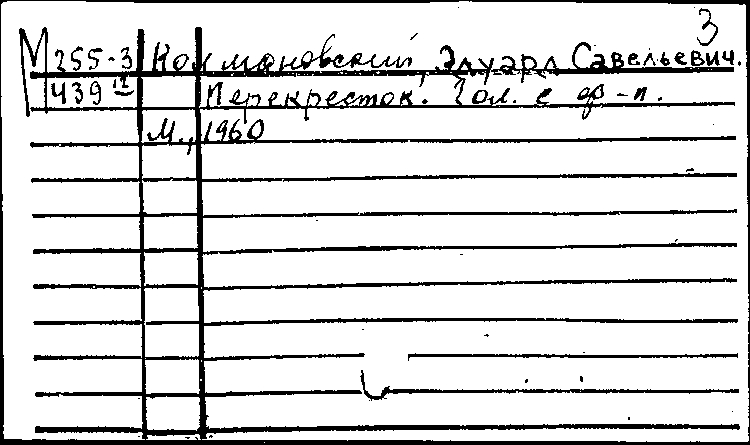 3
М 255-3 Колмановский, Эдуард Савельевич.
439 Перекресток. Гол. с ф-п.
М., 1960